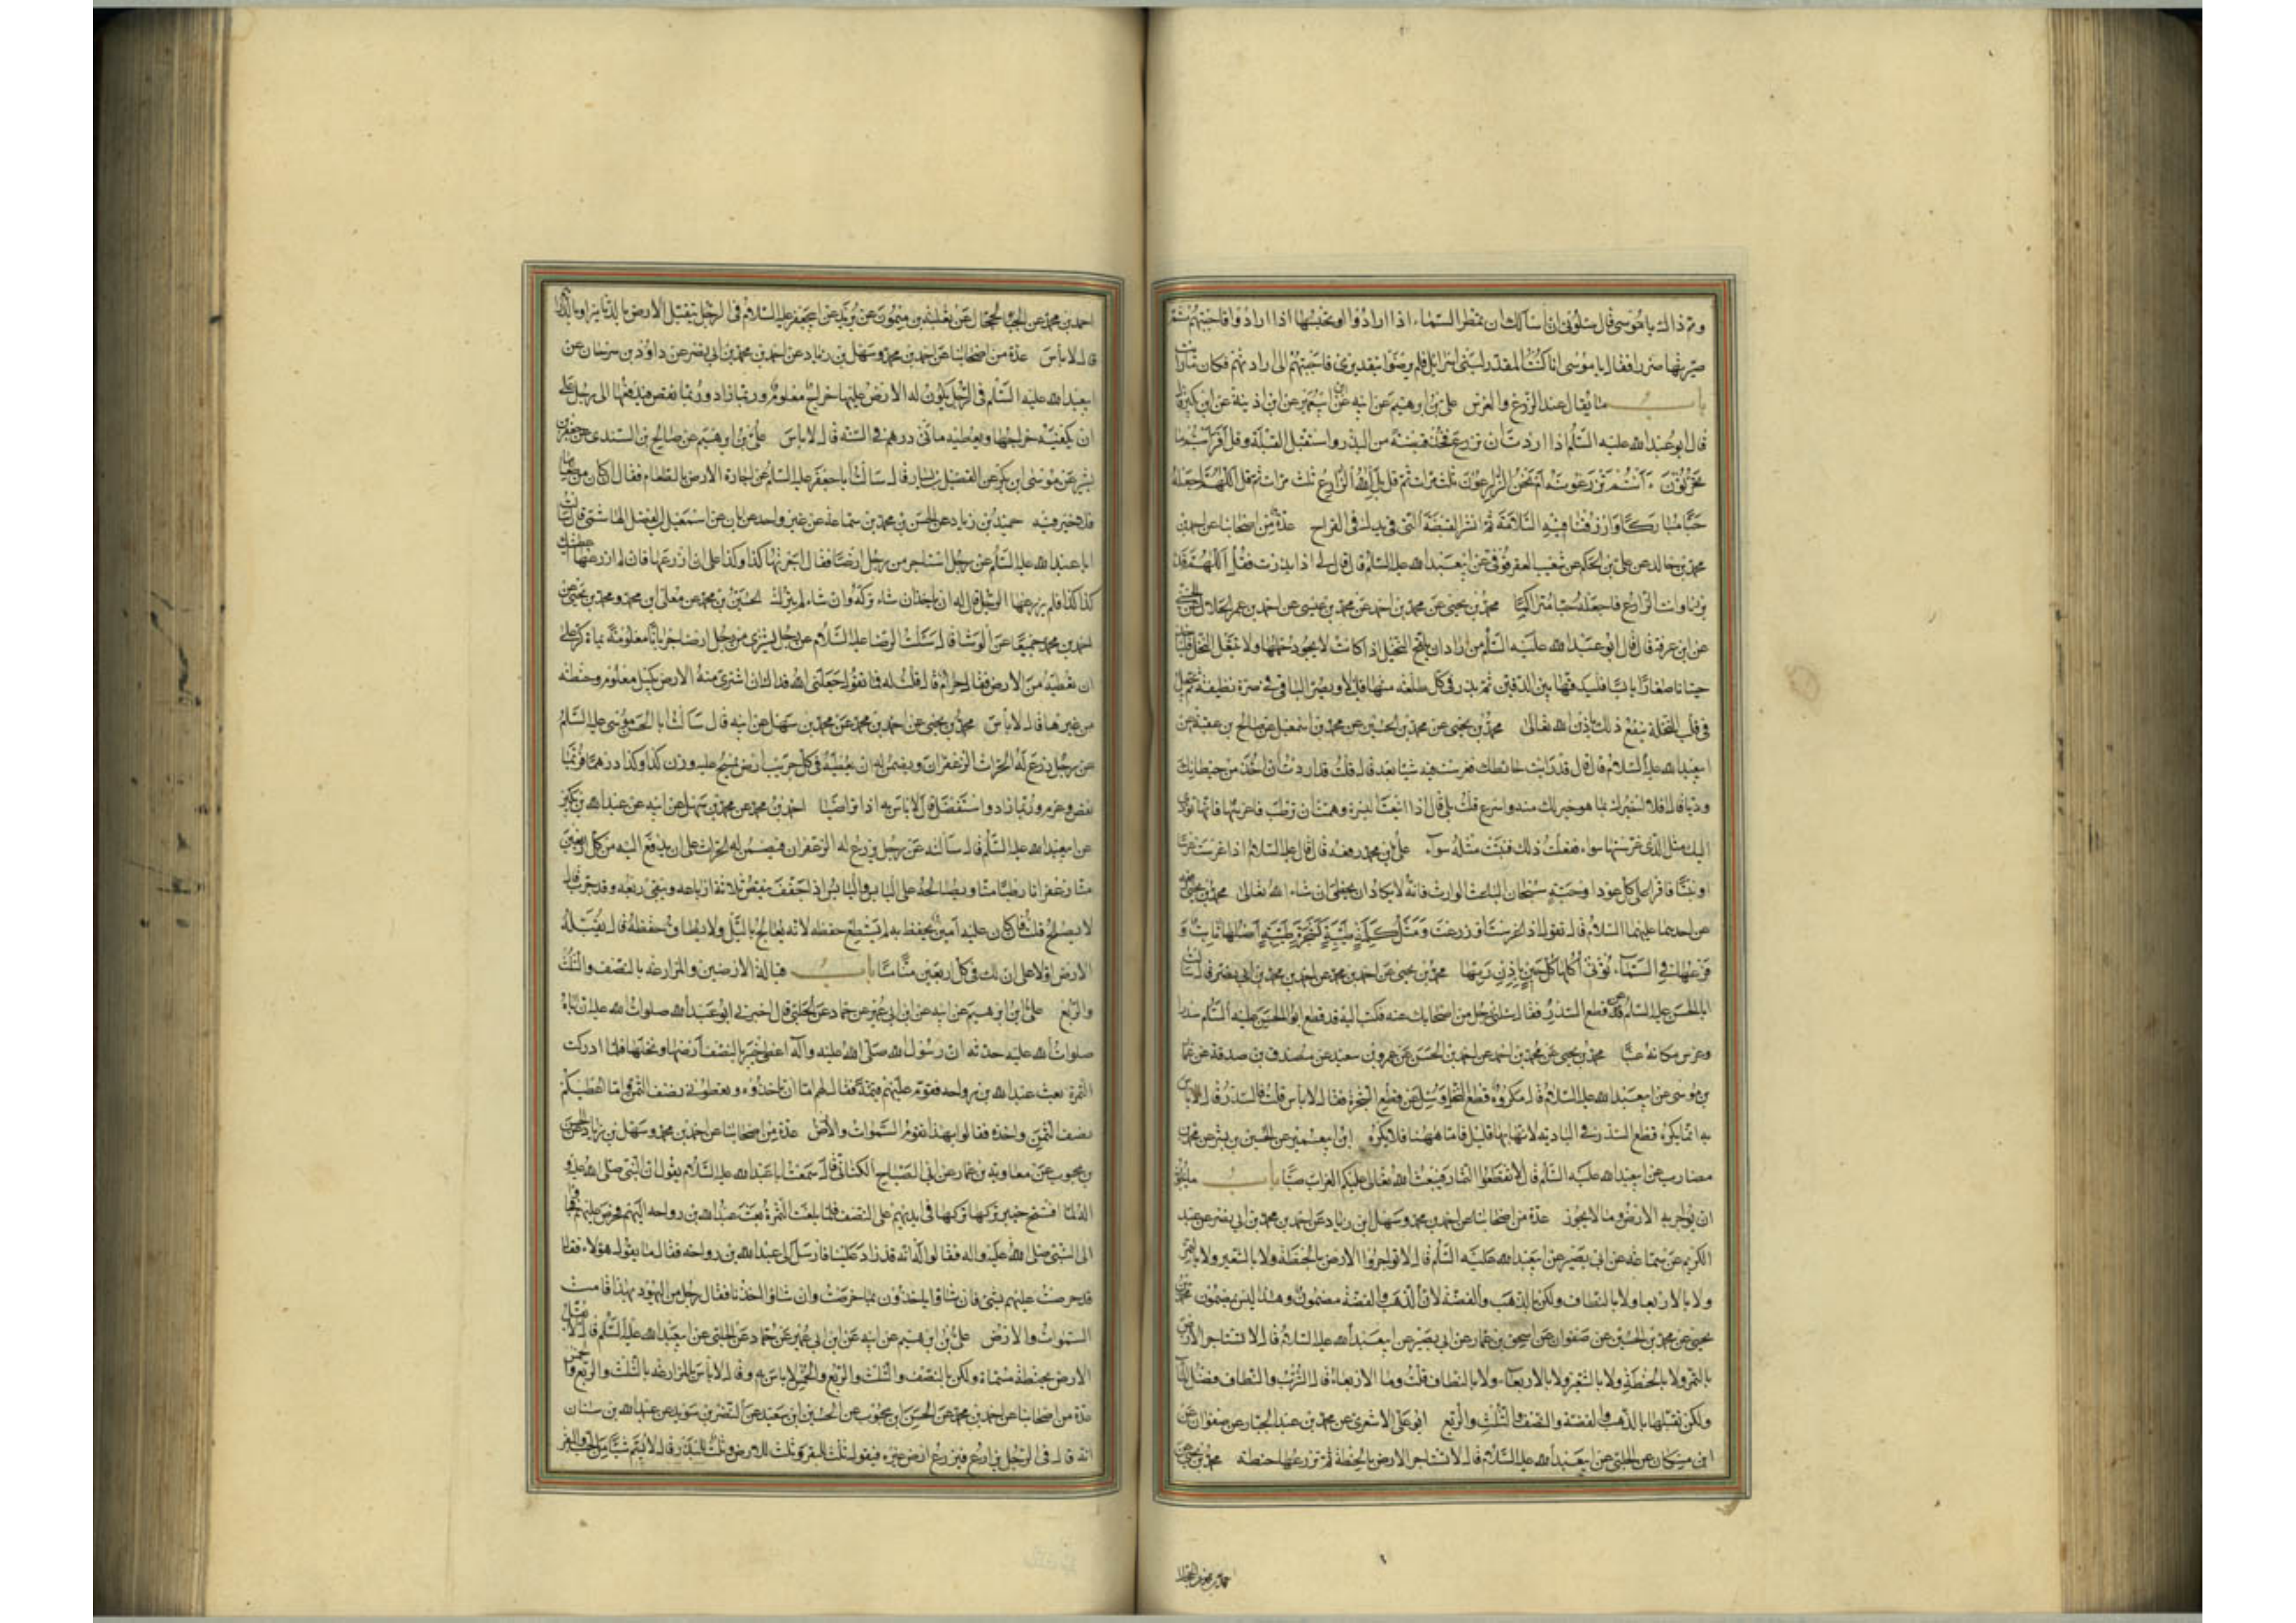 ومم ذاك يا موسى قال سلونى ان أسألك ان تمطر السماء اذا ارادوا او تحبسها اذا ارادوا فاجبتهم ثم
صيرتها ضررا فقال يا موسى انا كنت المقدر لبنى اسرائيل فلم يرضوا بتقديرى فاجبتهم الى ارادتهم فكان ما رأيت
باب ما يقال عند الزرع والغرس على بن ابرهيم عن ابيه عن ابن ابى عمير عن ابن اذينة عن ابن بكير قال
قال ابو عبد الله عليه السلم اذا اردت ان تزرع فخذ قبضة من البذر واستقبل القبلة وقل أفرأيتم ما
تحرثون ءأنتم تزرعونه أم نحن الزارعون ثلث مرات ثم قل بل الله الزارع ثلث مرات ثم قل اللهم اجعله
حبا مباركا وارزقنا فيه السلامة ثم انثر القبضة التى فى يدك فى القراح عدة من اصحابنا عن احمد بن
محمد بن خالد عن على بن الحكم عن شعيب العقرقوفى عن ابى عبد الله عليه السلم قال قال لى اذا بذرت فقل اللهم قد
بذرنا وانت الزارع فاجعله حبا متراكبا محمد بن يحيى عن محمد بن احمد عن محمد بن عيسى عن احمد بن عمر الجلاب عن الحضينى
عن ابن عرفة قال قال ابو عبد الله عليه السلم من اراد ان يلقح النخيل اذا كانت لا يجود حملها ولا يتبعل النخل فليأخذ
حيتانا صغارا يابسة فليدقها بين الدقين ثم يذر فى كل طلعة منها قليلا ويصر الباقى فى صرة نظيفة ثم يجعل
فى قلب النخلة ينفع ذلك باذن الله تعالى محمد بن يحيى عن محمد بن الحسين عن محمد بن اسمعيل عن صالح بن عقبة عن
ابى عبد الله عليه السلام قال قال قد رأيت حائطك فغرست فيه شيئا بعد قال قلت قد اردت ان آخذ من حيطانك
وديا قال افلا اخبرك بما هو خير لك منه واسرع قلت بلى قال اذا اينعت البسرة وهمت ان ترطب فاغرسها فانها تؤدى
اليك مثل الذى غرستها سواء ففعلت ذلك فنبتت مثله سواء على بن محمد رفعه قال قال عليه السلام اذا غرست غرسا
او نبتا فاقرأ على كل عود او حبة سبحان الباعث الوارث فانه لا يكاد ان يخطئ ان شاء الله تعالى محمد بن يحيى رفعه
عن احدهما عليهما السلام قال تقول اذا غرست او زرعت ومثل كلمة طيبة كشجرة طيبة أصلها ثابت و
فرعها فى السماء تؤتى أكلها كل حين بإذن ربها محمد بن يحيى عن احمد بن محمد عن احمد بن محمد بن ابى نصر قال سألت
ابا الحسن عليه السلام عن قطع السدر فقال سألنى رجل من اصحابك عنه فكتبت اليه قد قطع ابو الحسن عليه السلم سدرا
وغرس مكانه عنبا محمد بن يحيى عن محمد بن احمد عن احمد بن الحسن عن عمرو بن سعيد عن مصدق بن صدقة عن عمار
بن موسى عن ابى عبد الله عليه السلام قال مكروه قطع النخل وسئل عن قطع الشجرة فقال لا بأس قلت فالسدر قال لا بأس
به انما يكره قطع السدر فى البادية لانها بها قليل فاما ههنا فلا يكره ابن ابى عمير عن الحسين بن بشير عن
مضارب عن ابى عبد الله عليه السلم قال لا تقطعوا الثمار فيبعث الله تعالى عليكم العذاب صبا باب ما يجوز
ان يؤاجر به الارض وما لا يجوز عدة من اصحابنا عن احمد بن محمد وسهل ابن زياد عن احمد بن محمد بن ابى نصر عن عبد
الكريم عن سماعة عن ابى بصير عن ابى عبد الله عليه السلم قال لا تؤاجروا الارض بالحنطة ولا بالشعير ولا بالتمر
ولا بالاربعا ولا بالنطاف ولكن بالذهب والفضة لان الذهب والفضة مضمون وهذا ليس بمضمون محمد بن
يحيى عن محمد بن الحسين عن صفوان عن اسحق بن عمار عن ابى بصير عن ابى عبد الله عليه السلام قال لا تستأجر الارض
بالتمر ولا بالحنطة ولا بالشعير ولا بالاربعاء ولا بالنطاف قلت وما الاربعاء قال الشرب والنطاف فضل الماء
ولكن تقبلها بالذهب والفضة والنصف والثلث والربع ابو على الاشعرى عن محمد بن عبد الجبار عن صفوان عن
ابن مسكان عن الحلبى عن ابى عبد الله عليه السلام قال لا تستأجر الارض بالحنطة ثم تزرعها حنطة محمد بن يحيى عن
احمد بن محمد عن الحجال عن ثعلبة بن ميمون عن بريد عن ابى جعفر عليه السلام فى الرجل يتقبل الارض بالدنانير او بالدراهم
قال لا بأس عدة من اصحابنا عن احمد بن محمد وسهل بن زياد عن احمد بن محمد بن ابى نصر عن داود بن سرحان عن
ابى عبد الله عليه السلم فى الرجل يكون له الارض عليها خراج معلوم وربما زاد وربما نقص فيدفعها الى رجل على
ان يكفيه خراجها ويعطيه مائتى درهم فى السنة قال لا بأس على بن ابرهيم عن صالح بن السندى عن جعفر بن
بشير عن موسى بن بكر عن الفضيل بن يسار قال سألت ابا جعفر عليه السلم عن اجارة الارض بالطعام فقال ان كان من طعامها
فلا خير فيه حميد بن زياد عن الحسن بن محمد بن سماعة عن غير واحد عن ابان عن اسمعيل بن الفضل الهاشمى قال سألت
ابا عبد الله عليه السلم عن رجل استأجر من رجل ارضا فقال اجرنيها كذا وكذا على ان ازرعها فان لم ازرعها اعطيتك
كذا كذا فلم يزرعها الرجل قال له ان يأخذ ان شاء تركه وان شاء لم يتركه الحسين بن محمد عن معلى ابن محمد ومحمد بن يحيى عن
احمد بن محمد جميعا عن الوشا قال سئلت الرضا عليه السلام عن رجل يشترى من رجل ارضا جربانا معلومة بمائة كر على
ان يعطيه من الارض فقال حرام قال قلت له فما تقول جعلنى الله فداك ان اشترى منه الارض بكيل معلوم وحنطة
من غيرها قال لا بأس محمد بن يحيى عن احمد بن محمد عن محمد بن سهل عن ابيه قال سألت ابا الحسن موسى عليه السلم
عن رجل يزرع له الحراث الزعفران ويضمن له ان يعطيه فى كل جريب ارض يمسح عليه وزن كذا وكذا درهما فربما
نقص وغرم وربما زاد واستفضل قال لا بأس به اذا تراضيا احمد بن محمد عن محمد بن سهل عن ابيه عن عبد الله بن بكير
عن ابى عبد الله عليه السلم قال سألته عن رجل يزرع له الزعفران فيضمن له الحراث على ان يدفع اليه من كل اربعين
منا زعفرانا رطبا منا ويصالحه على اليابس واليابس اذا جفف ينقص ثلاثة ارباعه ويبقى ربعه وقد جرب قال
لا يصلح قلت فان كان عليه امين يحفظ به لم يستطع حفظه لانه يعالج بالليل ولا يطاق حفظه قال يقبله
الارض اولا على ان لك فى كل اربعين منا منا باب قبالة الارضين والمزارعة بالنصف والثلث
والربع على ابن ابرهيم عن ابيه عن ابن ابى عمير عن حماد عن الحلبى قال اخبرنى ابو عبد الله صلوات الله عليه ان اباه
صلوات الله عليه حدثه ان رسول الله صلى الله عليه وآله اعطى خيبر بالنصف ارضها ونخلها فلما ادركت
الثمرة بعث عبد الله بن رواحه فقوم عليهم قيمة فقال لهم اما ان تأخذوه وتعطونى نصف الثمن واما اعطيكم
نصف الثمن واخذه فقالوا بهذا تقوم السموات والارض عدة من اصحابنا عن احمد بن محمد وسهل بن زياد عن الحسن
بن محبوب عن معاوية بن عمار عن ابى الصباح الكنانى قال سمعت ابا عبد الله عليه السلام يقول ان النبى صلى الله عليه و
آله لما افتتح خيبر تركها فى ايديهم على النصف فلما بلغت الثمرة بعث عبد الله بن رواحه اليهم فخرص عليهم فجاؤا
الى النبى صلى الله عليه واله فقالوا انه قد زاد علينا فارسل الى عبد الله بن رواحه فقال ما يقول هؤلاء فقال
قد خرصت عليهم بشئ فان شاؤا يأخذون بما خرصت وان شاؤا اخذنا فقال رجل من اليهود بهذا قامت
السموات والارض على بن ابرهيم عن ابيه عن ابن ابى عمير عن حماد عن الحلبى عن ابى عبد الله عليه السلم قال لا تقبل
الارض بحنطة مسماة ولكن بالنصف والثلث والربع والخمس لا بأس به وقال لا بأس بالمزارعة بالثلث والربع والخمس
عدة من اصحابنا عن احمد بن محمد عن الحسن بن محبوب عن الحسين ابن سعيد عن النضر بن سويد عن عبد الله بن سنان
انه قال فى الرجل يزارع فيزرع ارض غيره فيقول ثلث للبقر وثلث للارض وثلث للبذر قال لا يسم شيئا من الحب والبقر